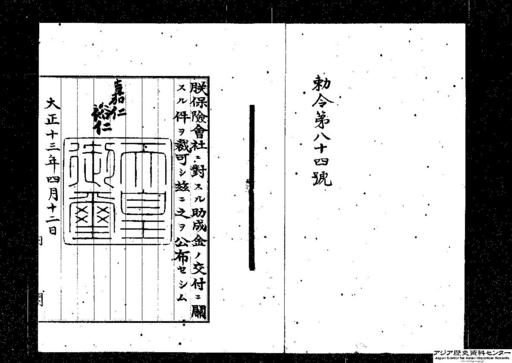 勅令第八十四號
朕保險會社ニ對スル助成金ノ交付ニ關
スル件ヲ裁可シ玆ニ之ヲ公布セシム
嘉仁
裕仁
天皇
御璽
大正十三年四月十二日
アジア歴史資料センター
Japan Center for Asian Historical Records